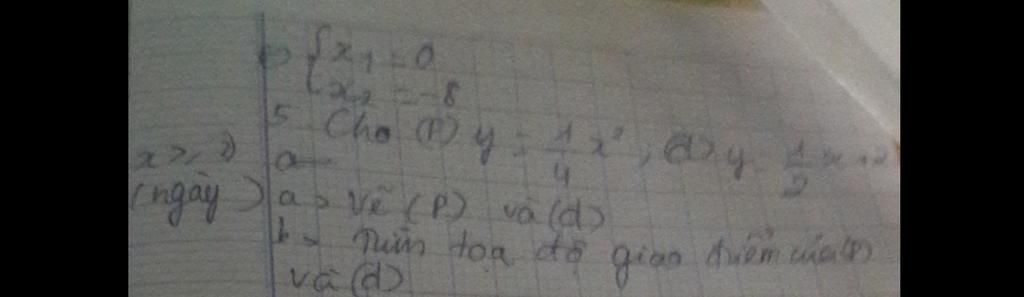 {x₁ = 0
{x₂ = -8
5 Cho (P) y = 1/4 x², (d) y = 1/2 x + 2
x ≥
a
(ngày) a> Vẽ (P) và (d)
b> Tìm toạ độ giao điểm của (P)
và (d)